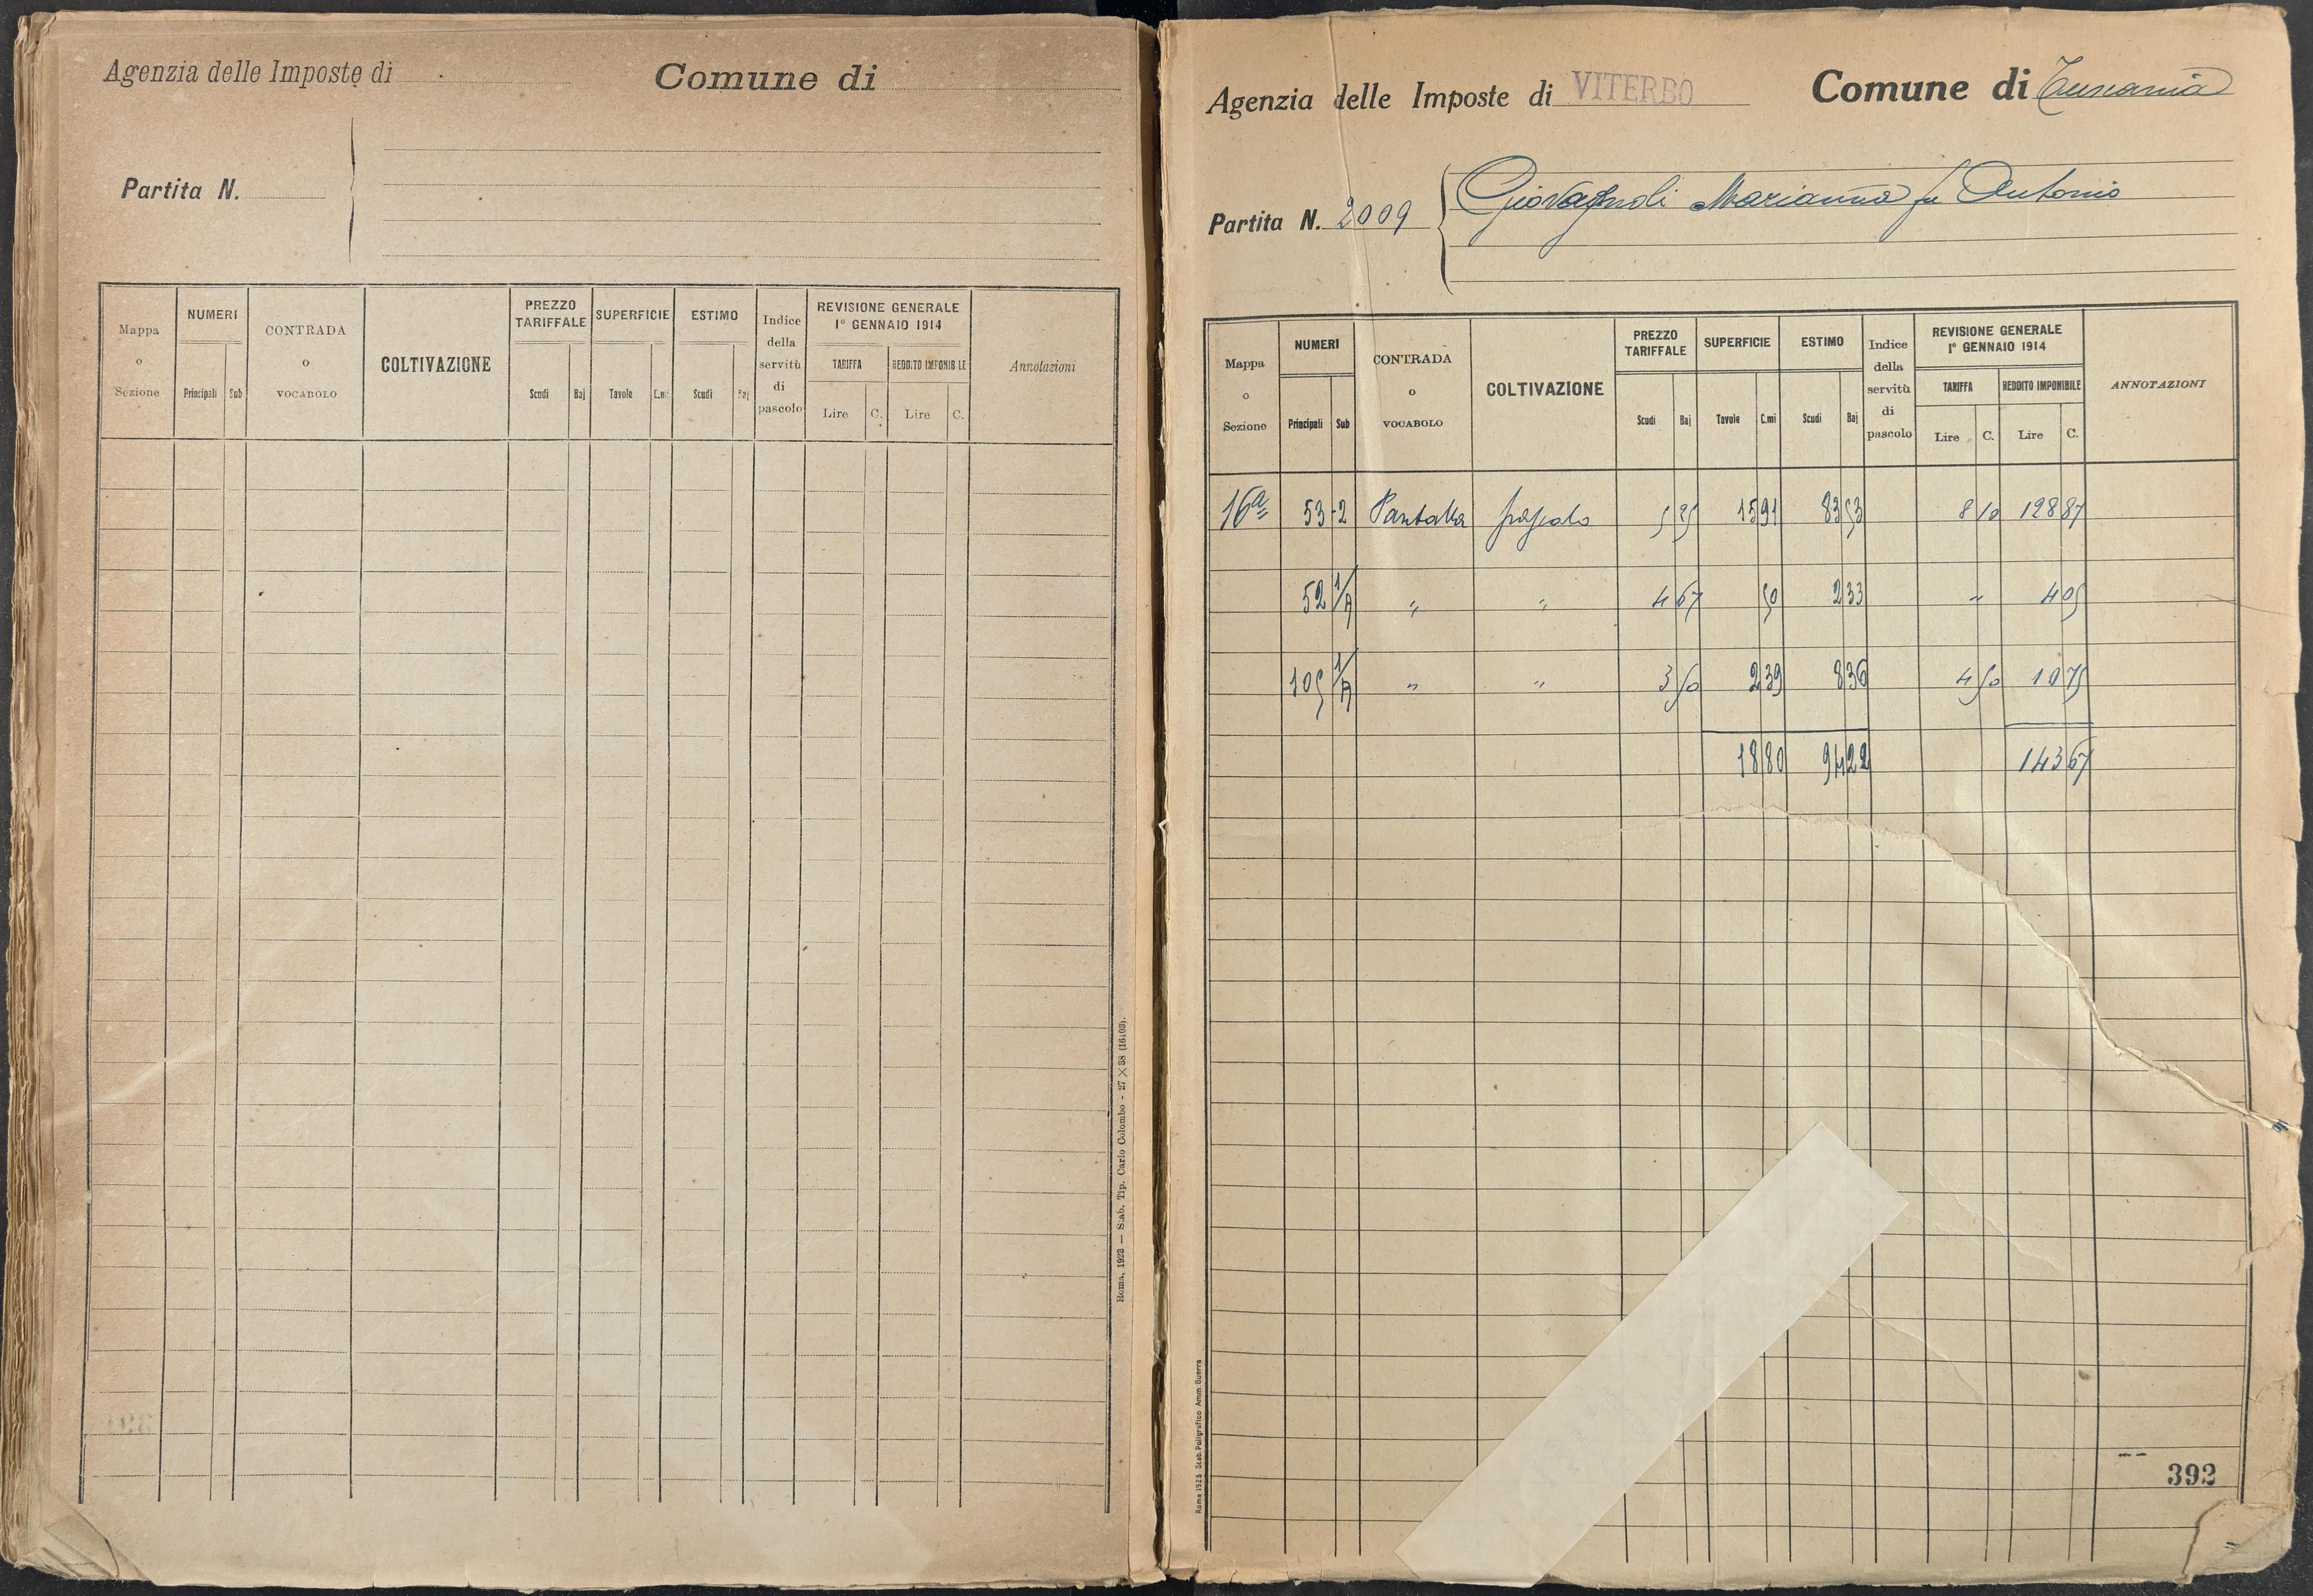 Agenzia delle Imposte di Comune di
Partita N.
Mappa o Sezione
NUMERI
Principali Sub
CONTRADA o VOCABOLO
COLTIVAZIONE
PREZZO TARIFFALE
Scudi Baj
SUPERFICIE
Tavole C.mi
ESTIMO
Scudi Baj
Indice della servitù di pascolo
REVISIONE GENERALE
1° GENNAIO 1914
TARIFFA REDDITO IMPONIBILE
Lire C. Lire C.
Annotazioni
Roma, 1923 — Stab. Tip. Carlo Colombo - 27 × 38 (16103).
Agenzia delle Imposte di VITERBO Comune di Tuscania
Partita N. 2009 Giovagnoli Marianna fu Antonio
Mappa o Sezione
NUMERI
Principali Sub
CONTRADA o VOCABOLO
COLTIVAZIONE
PREZZO TARIFFALE
Scudi Baj
SUPERFICIE
Tavole C.mi
ESTIMO
Scudi Baj
Indice della servitù di pascolo
REVISIONE GENERALE
1° GENNAIO 1914
TARIFFA REDDITO IMPONIBILE
Lire C. Lire C.
ANNOTAZIONI
16a 53 - 2 Pantalla pascolo 5 25 15 91 83 53 8 10 128 87
52 1/A " " 4 67 50 2 33 " 4 05
105 1/A " " 3 50 2 39 8 36 4 50 10 75
18 80 94 22 143 67
Roma 1925 Stab. Poligrafico Amm. Guerra
392